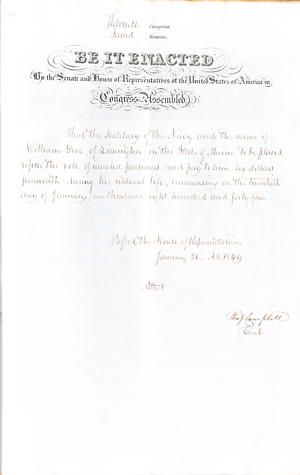 Thirtieth Congress
Second Session
BE IT ENACTED
By the Senate and House of Representatives of the United States of America in
Congress Assembled
That the Secretary of the Navy cause the name of
William Gove of Limington in the State of Maine to be placed
upon the roll of invalid pensioners and pay to him six dollars
per month during his natural life, commencing on the twentieth
day of January, one thousand eight hundred and forty four
Passed the House of Representatives
January 26. AD. 1849
Attest
Tho J Campbell
Clerk